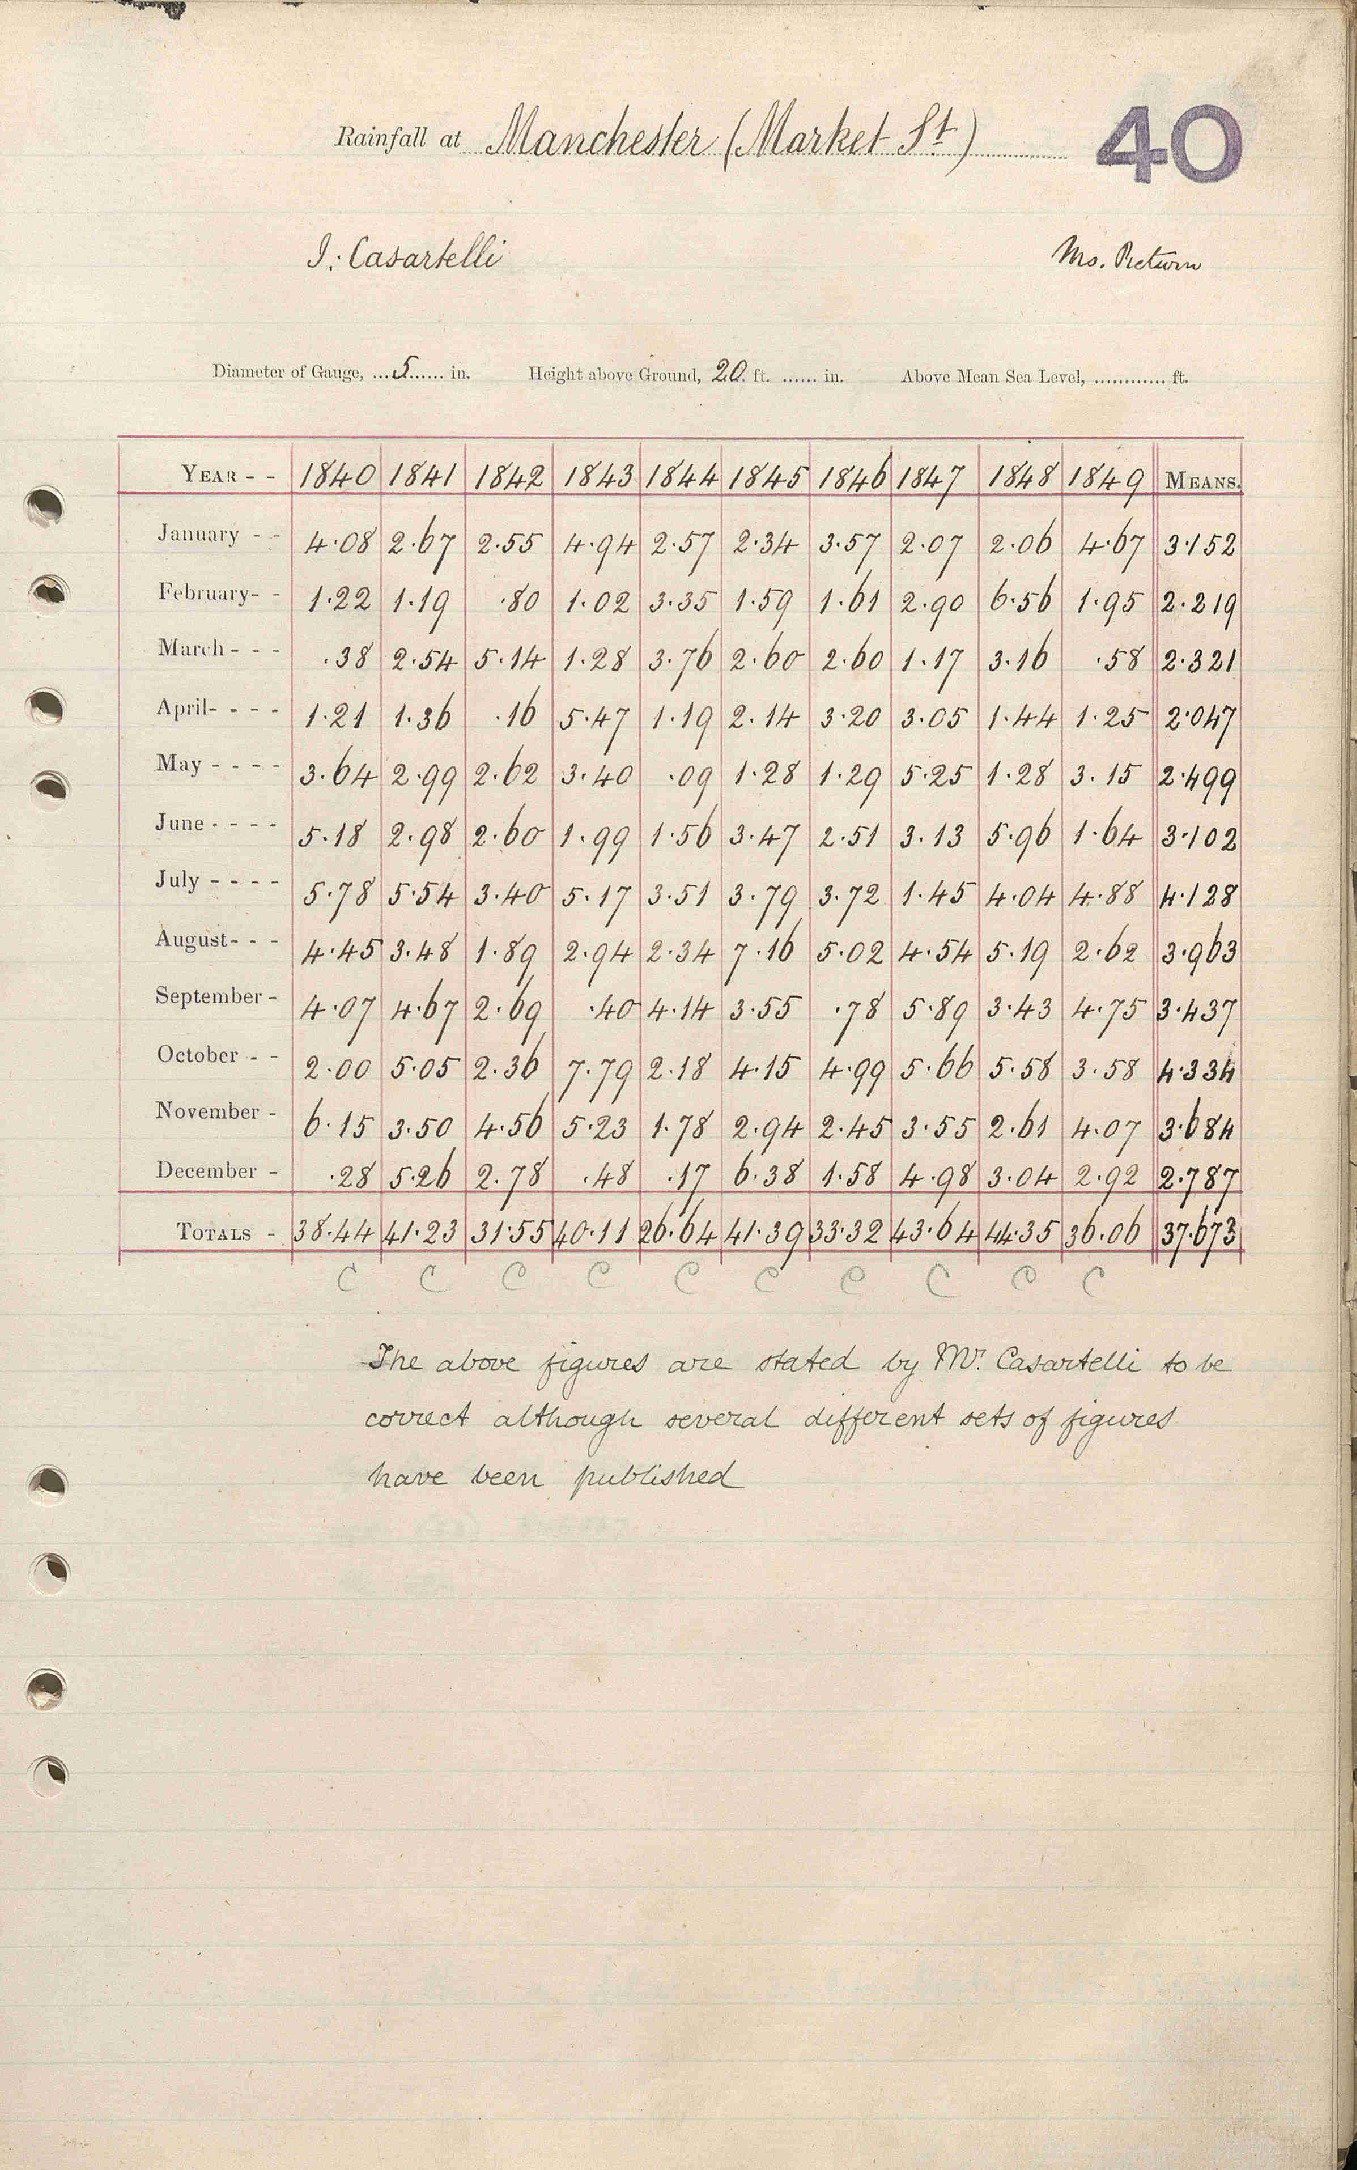 Rainfall at Manchester (Market St) 40
J. Casartelli Ms. Return
Diameter of Gauge, ...5...... in. Height above Ground, 20 ft. ...... in. Above Mean Sea Level, ............ ft.
YEAR - - 1840 1841 1842 1843 1844 1845 1846 1847 1848 1849 MEANS.
January - - 4.08 2.67 2.55 4.94 2.57 2.34 3.57 2.07 2.06 4.67 3.152
February- - 1.22 1.19 .80 1.02 3.35 1.59 1.61 2.90 6.56 1.95 2.219
March - - - .38 2.54 5.14 1.28 3.76 2.60 2.60 1.17 3.16 .58 2.321
April- - - - 1.21 1.36 .16 5.47 1.19 2.14 3.20 3.05 1.44 1.25 2.047
May - - - - 3.64 2.99 2.62 3.40 .09 1.28 1.29 5.25 1.28 3.15 2.499
June - - - - 5.18 2.98 2.60 1.99 1.56 3.47 2.51 3.13 5.96 1.64 3.102
July - - - - 5.78 5.54 3.40 5.17 3.51 3.79 3.72 1.45 4.04 4.88 4.128
August- - - 4.45 3.48 1.89 2.94 2.34 7.16 5.02 4.54 5.19 2.62 3.963
September - 4.07 4.67 2.69 .40 4.14 3.55 .78 5.89 3.43 4.75 3.437
October - - 2.00 5.05 2.36 7.79 2.18 4.15 4.99 5.66 5.58 3.58 4.334
November - 6.15 3.50 4.56 5.23 1.78 2.94 2.45 3.55 2.61 4.07 3.684
December - .28 5.26 2.78 .48 .17 6.38 1.58 4.98 3.04 2.92 2.787
TOTALS - 38.44 41.23 31.55 40.11 26.64 41.39 33.32 43.64 44.35 36.06 37.673
C C C C C C C C C C
The above figures are stated by Mr. Casartelli to be
correct although several different sets of figures
have been published